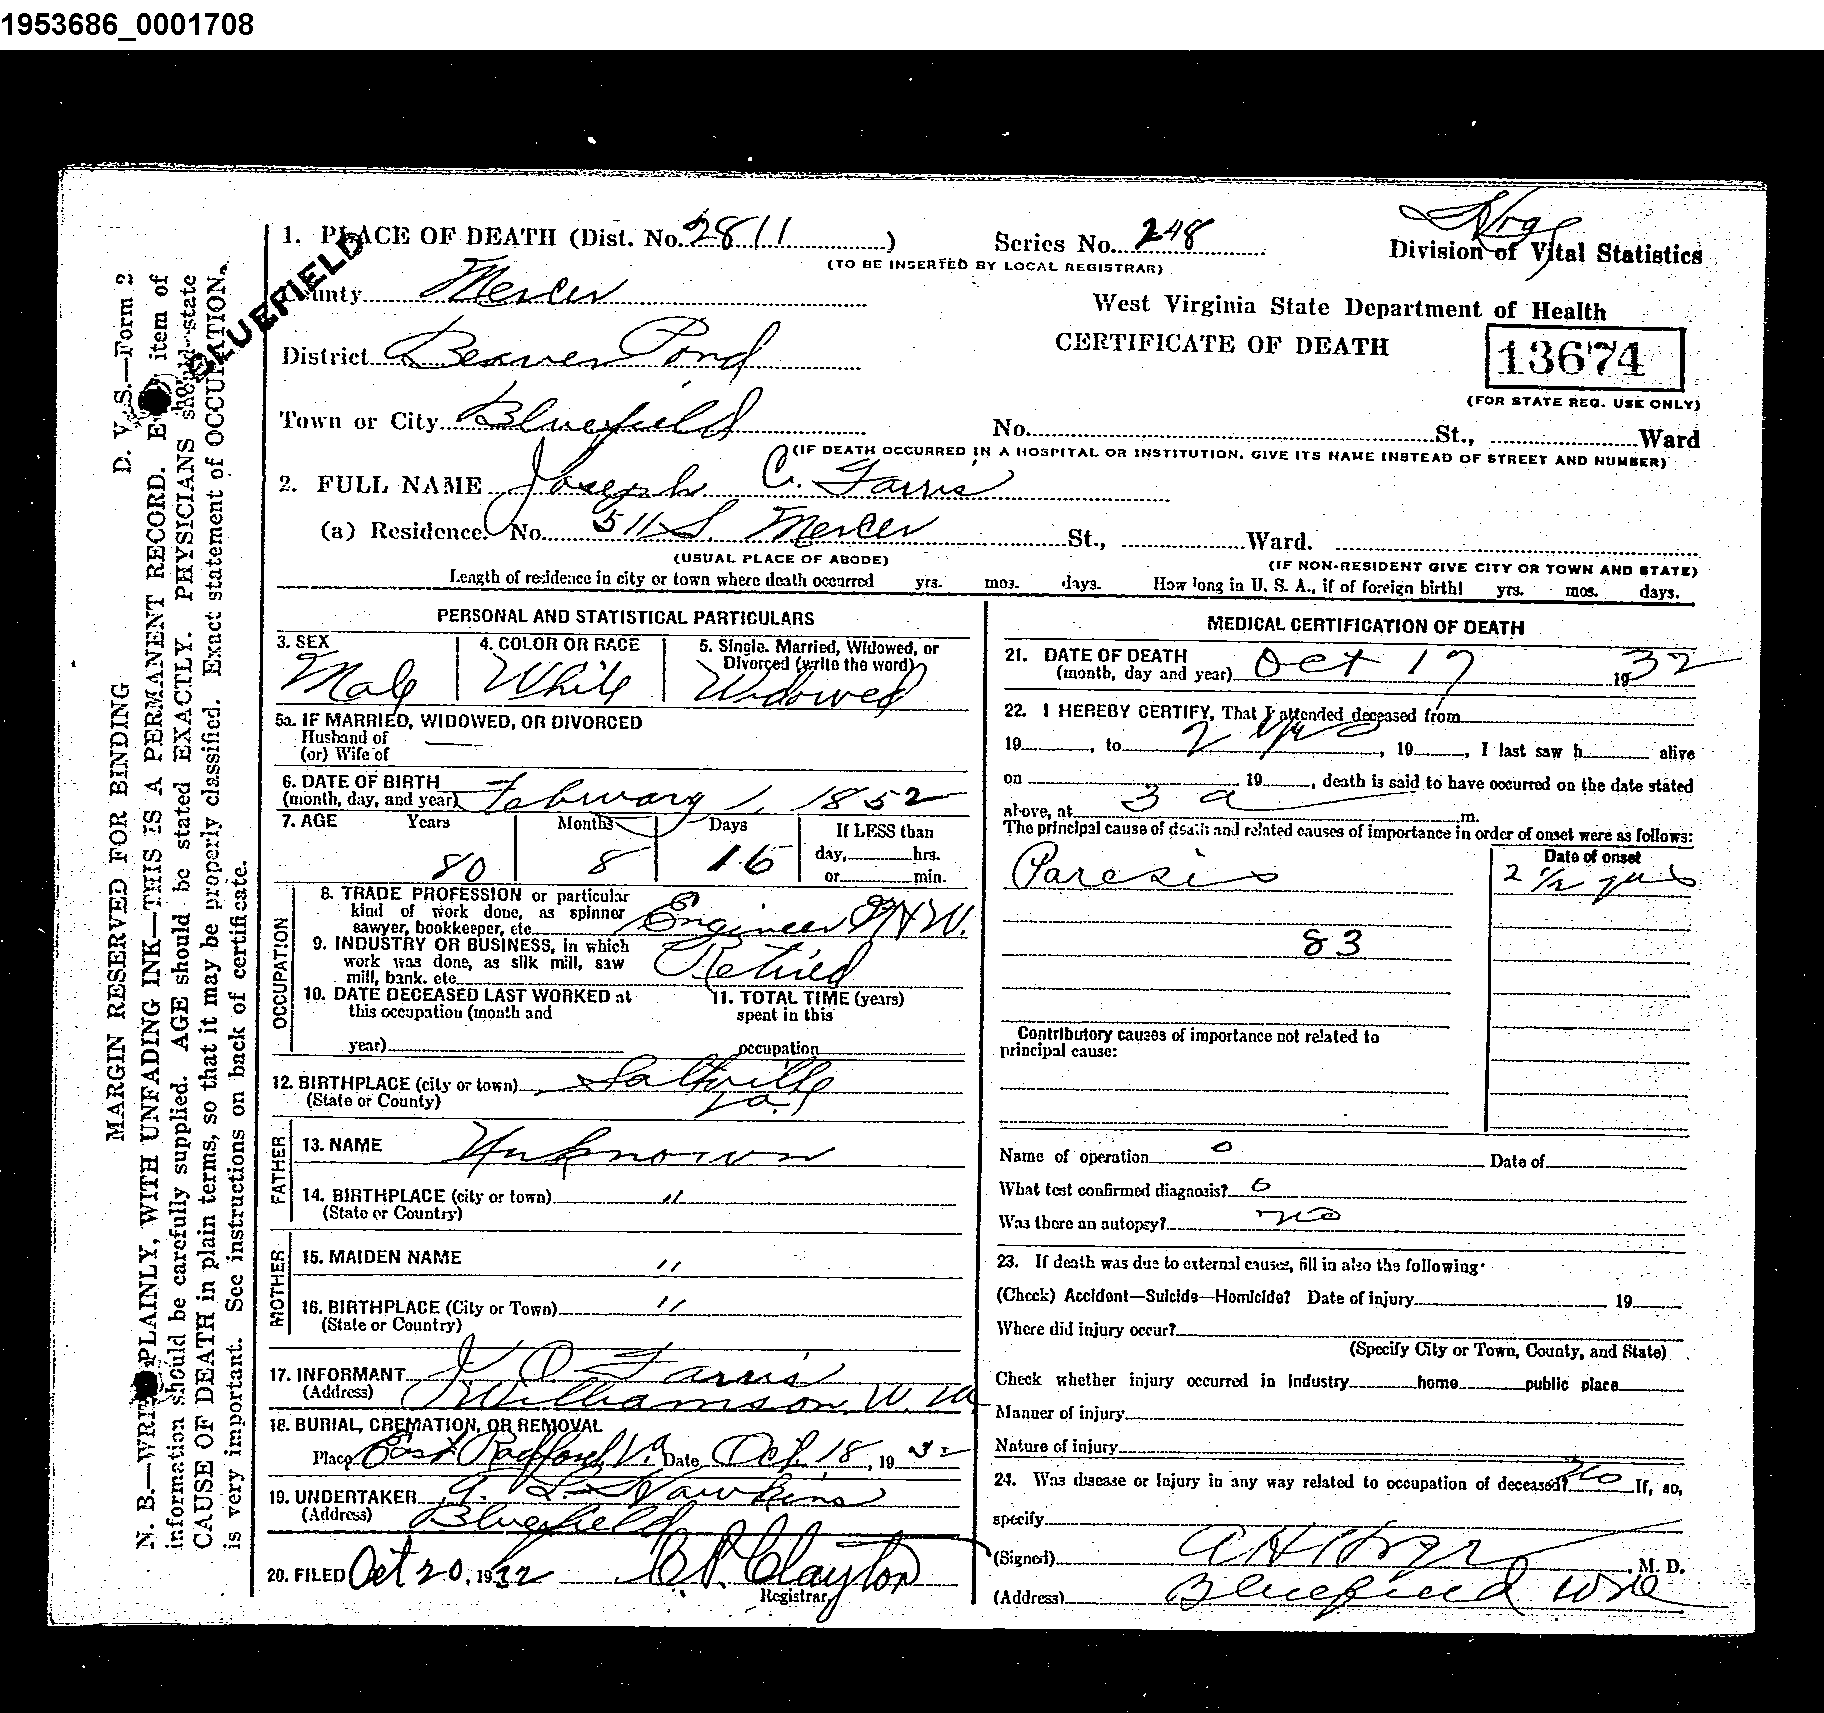 1953686_0001708
1. PLACE OF DEATH (Dist. No. 2811)
Series No. 248
Division of Vital Statistics
(TO BE INSERTED BY LOCAL REGISTRAR)
BLUEFIELD
County Mercer
West Virginia State Department of Health
CERTIFICATE OF DEATH
13674
(FOR STATE REG. USE ONLY)
District Beaver Pond
Town or City Bluefield
No. St., Ward
(IF DEATH OCCURRED IN A HOSPITAL OR INSTITUTION, GIVE ITS NAME INSTEAD OF STREET AND NUMBER)
2. FULL NAME Joseph C. Farris
(a) Residence. No. 511 S. Mercer St., Ward.
(USUAL PLACE OF ABODE)
(IF NON-RESIDENT GIVE CITY OR TOWN AND STATE)
Length of residence in city or town where death occurred yrs. mos. days. How long in U. S. A., if of foreign birth! yrs. mos. days.
PERSONAL AND STATISTICAL PARTICULARS
3. SEX
Male
4. COLOR OR RACE
White
5. Single, Married, Widowed, or
Divorced (write the word)
Widowed
5a. IF MARRIED, WIDOWED, OR DIVORCED
Husband of
(or) Wife of
6. DATE OF BIRTH
(month, day, and year) February 1, 1852
7. AGE Years Months Days If LESS than
day, hrs.
80 8 16 or min.
OCCUPATION
8. TRADE PROFESSION or particular
kind of work done, as spinner
sawyer, bookkeeper, etc. Engineer N&W.
9. INDUSTRY OR BUSINESS, in which
work was done, as silk mill, saw
mill, bank, etc. Retired
10. DATE DECEASED LAST WORKED at
this occupation (month and
year)
11. TOTAL TIME (years)
spent in this
occupation
12. BIRTHPLACE (city or town) Saltville
(State or County) Va.
FATHER
13. NAME Unknown
14. BIRTHPLACE (city or town) "
(State or Country)
MOTHER
15. MAIDEN NAME "
16. BIRTHPLACE (City or Town) "
(State or Country)
17. INFORMANT J. O. Farris
(Address) Williamson, W. Va
18. BURIAL, CREMATION, OR REMOVAL
Place East Radford, Va. Date Oct. 18, 1932
19. UNDERTAKER A. L. Hawkins
(Address) Bluefield
20. FILED Oct 20, 1932 Clayton
Registrar
MEDICAL CERTIFICATION OF DEATH
21. DATE OF DEATH
(month, day and year) Oct 17 1932
22. I HEREBY CERTIFY, That I attended deceased from
19 , to 2 yrs , 19 , I last saw h alive
on 19 , death is said to have occurred on the date stated
above, at 3 a m.
The principal cause of death and related causes of importance in order of onset were as follows:
Date of onset
Paresis 2 1/2 yrs
83
Contributory causes of importance not related to
principal cause:
Name of operation 0 Date of
What test confirmed diagnosis? 0
Was there an autopsy? no
23. If death was due to external causes, fill in also the following:
(Check) Accident—Suicide—Homicide? Date of injury 19
Where did injury occur?
(Specify City or Town, County, and State)
Check whether injury occurred in Industry home public place
Manner of injury
Nature of injury
24. Was disease or injury in any way related to occupation of deceased? no If, so,
specify
(Signed) M. D.
(Address) Bluefield W Va
D. V. S.—Form 2
MARGIN RESERVED FOR BINDING
N. B.—WRITE PLAINLY, WITH UNFADING INK—THIS IS A PERMANENT RECORD. Every item of
information should be carefully supplied. AGE should be stated EXACTLY. PHYSICIANS should state
CAUSE OF DEATH in plain terms, so that it may be properly classified. Exact statement of OCCUPATION
is very important. See instructions on back of certificate.